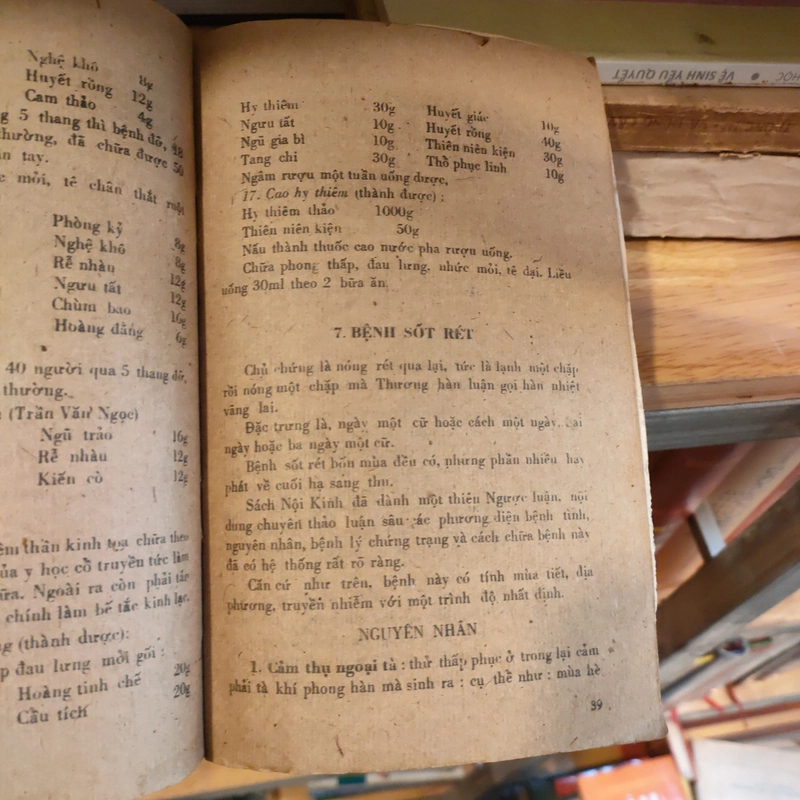 Nghệ khô 8g
Huyết rồng 12g
Cam thảo 4g
g 5 thang thì bệnh đỡ,
thường, đã chữa được 50
n tay.
mỏi, tê chân thắt
Phòng kỷ 8g
Nghệ khô 8g
Rễ nhàu 12g
Ngưu tất 12g
Chùm bao 16g
Hoàng đằng 6g
40 người qua 5 thang đỡ,
thường.
(Trần Văn Ngọc)
Ngũ trảo 16g
Rễ nhàu 12g
Kiến cò 12g
êm thần kinh tọa chữa theo
ủa y học cổ truyền tức làm
ữa. Ngoài ra còn phải tác
chính làm bế tắc kinh lạc.
g (thành dược):
p đau lưng mỏi gối :
Hoàng tinh chế 20g
Cẩu tích 20g
Hy thiêm 30g Huyết giác 10g
Ngưu tất 10g Huyết rồng 40g
Ngũ gia bì 10g Thiên niên kiện 30g
Tang chi 30g Thổ phục linh 10g
Ngâm rượu một tuần uống được.
17. Cao hy thiêm (thành dược) :
Hy thiêm thảo 1000g
Thiên niên kiện 50g
Nấu thành thuốc cao nước pha rượu uống.
Chữa phong thấp, đau lưng, nhức mỏi, tê dại. Liều
uống 30ml theo 2 bữa ăn.
7. BỆNH SỐT RÉT
Chủ chứng là nóng rét qua lại, tức là lạnh một chặp
rồi nóng một chặp mà Thương hàn luận gọi hàn nhiệt
vãng lai.
Đặc trưng là, ngày một cữ hoặc cách một ngày, hai
ngày hoặc ba ngày một cữ.
Bệnh sốt rét bốn mùa đều có, nhưng phần nhiều hay
phát về cuối hạ sang thu.
Sách Nội Kinh đã dành một thiên Ngược luận, nội
dung chuyên thảo luận sâu các phương diện bệnh tình,
nguyên nhân, bệnh lý chứng trạng và cách chữa bệnh này
đã có hệ thống rất rõ ràng.
Căn cứ như trên, bệnh này có tính mùa tiết, địa
phương, truyền nhiễm với một trình độ nhất định.
NGUYÊN NHÂN
1. Cảm thụ ngoại tà : thử thấp phục ở trong lại cảm
phải tà khí phong hàn mà sinh ra : cụ thể như : mùa hè
39
HỌC • VỆ SINH YẾU QUYẾT